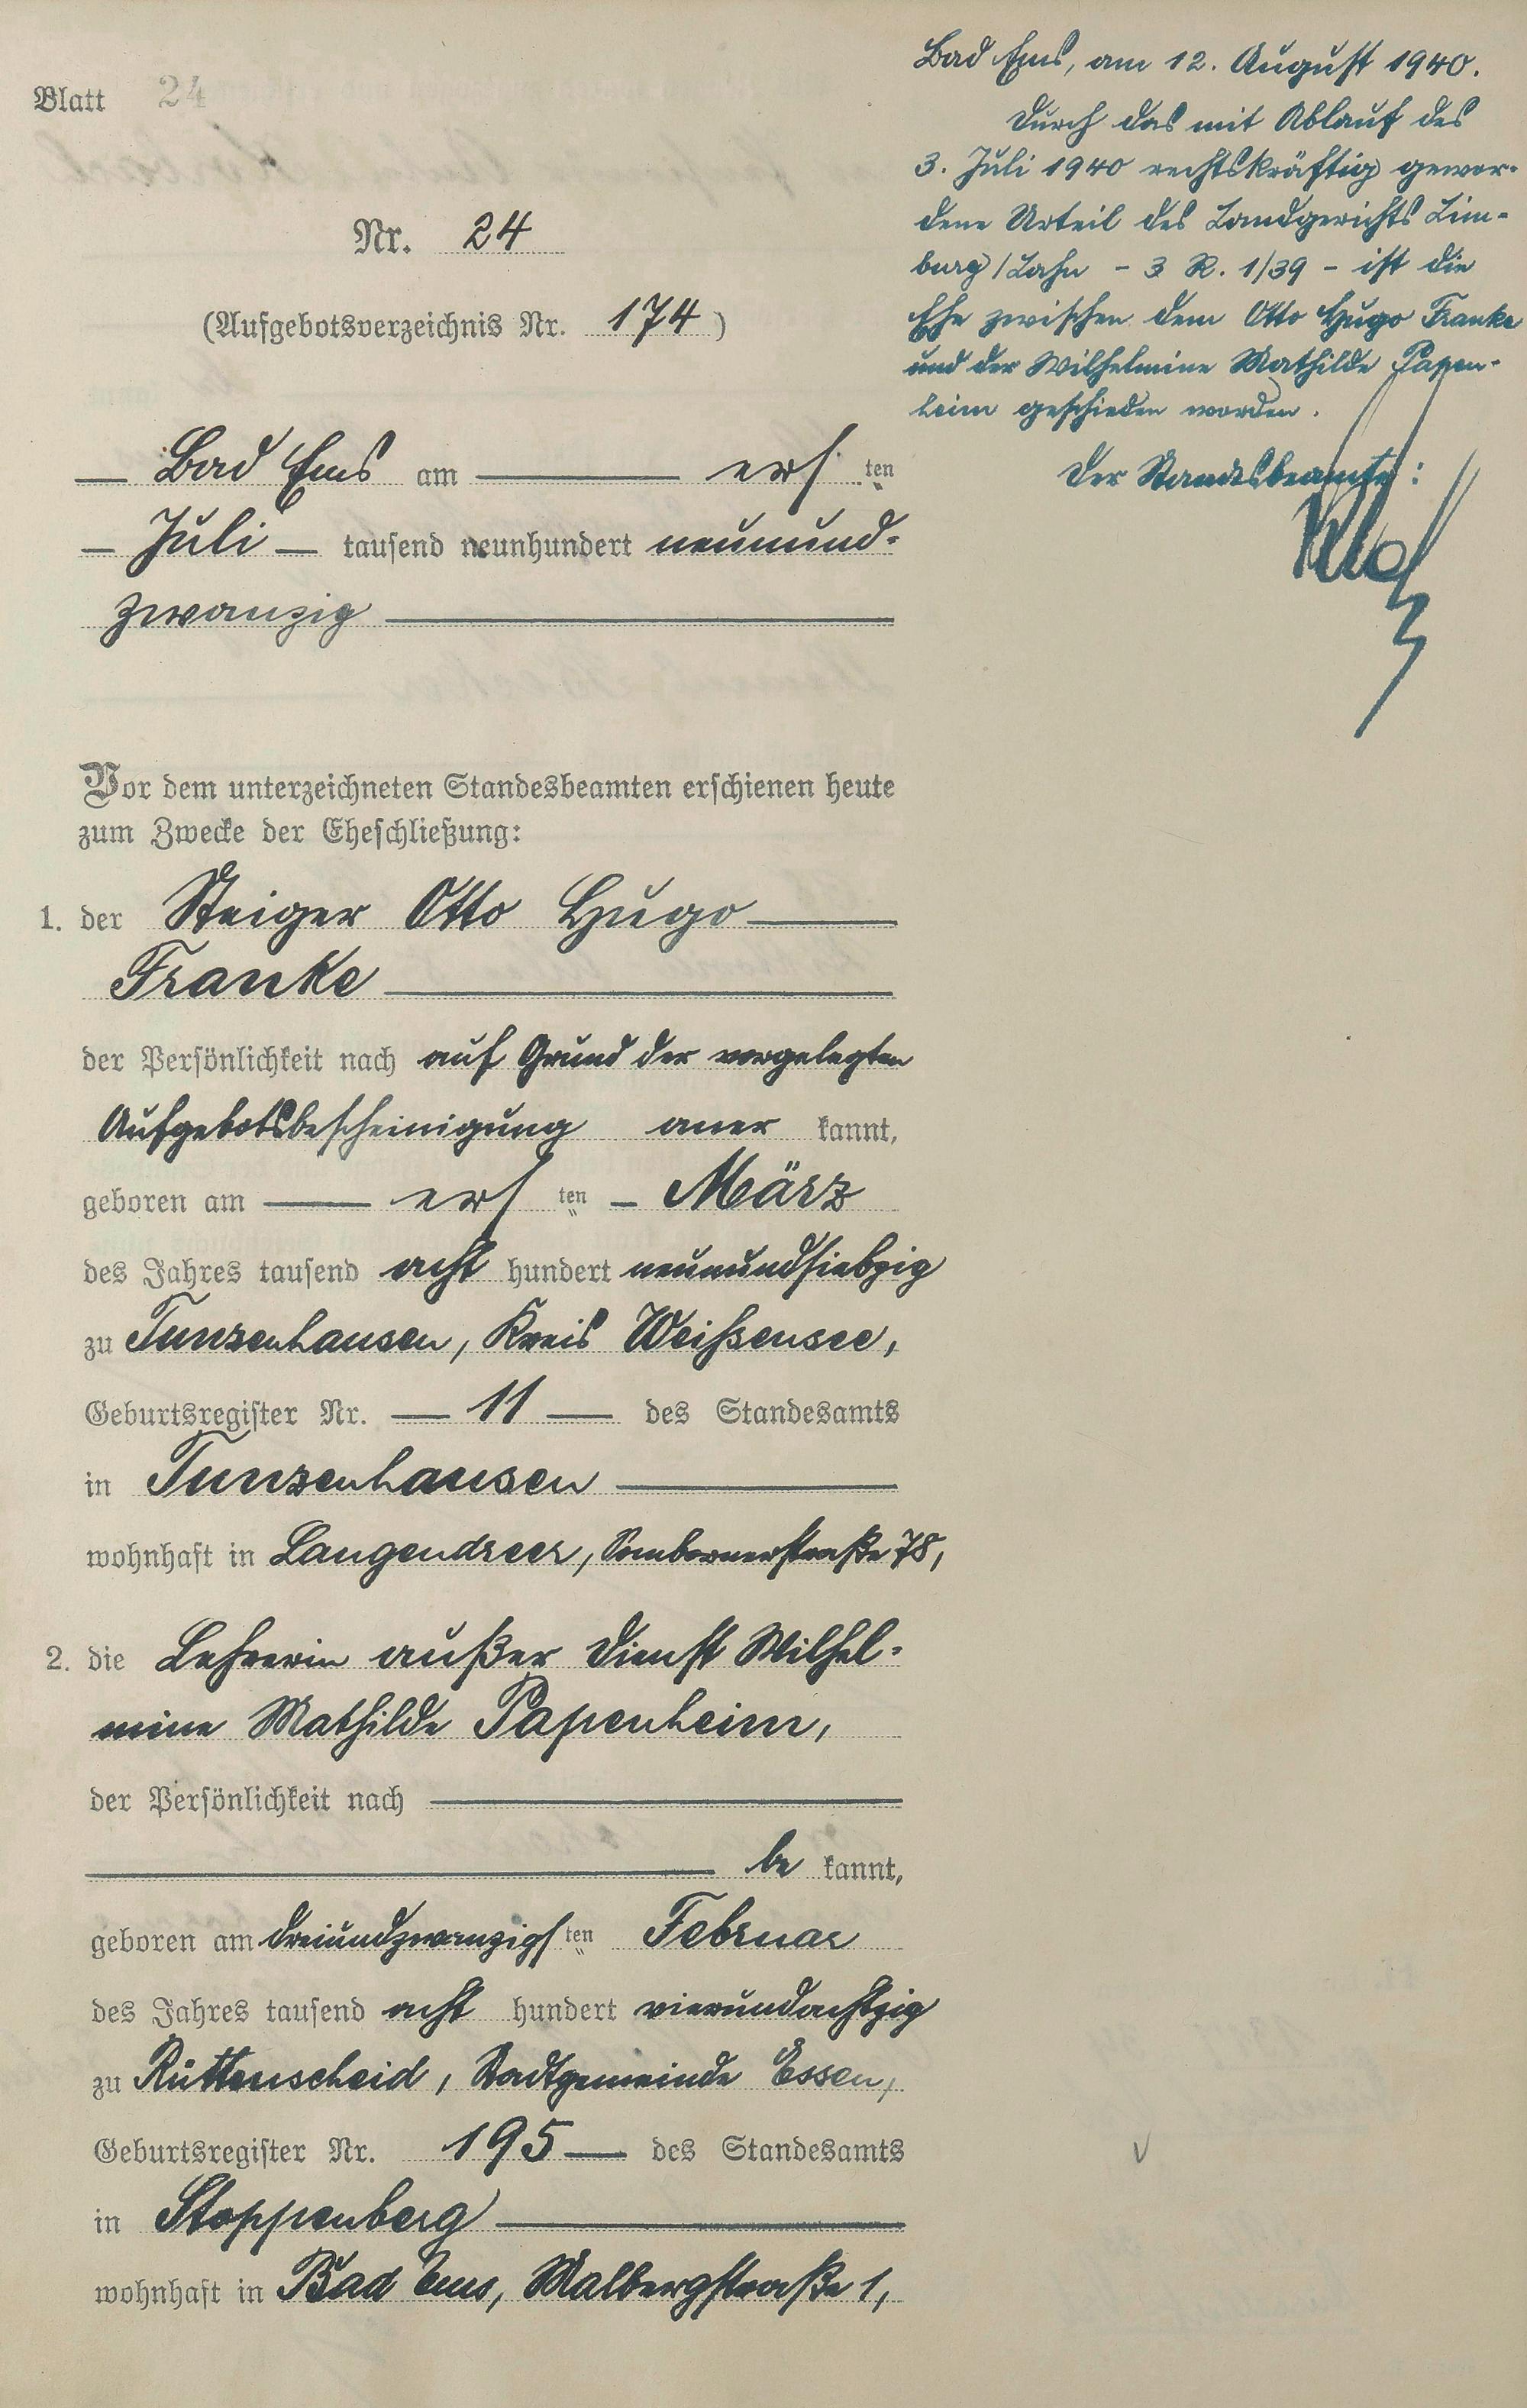 Blatt 24
Nr. 24
(Aufgebotsverzeichnis Nr. 174)
Bad Ems am erſten
Juli tausend neunhundert neunund-
zwanzig
Bad Ems, am 12. August 1940.
Durch das mit Ablauf des
3. Juli 1940 rechtskräftig gewor-
dene Urteil des Landgerichts Lim-
burg/Lahn - 3 R. 1/39 - ist die
Ehe zwischen dem Otto Hugo Franke
und der Wilhelmine Mathilde Papen-
heim geschieden worden.
Der Standesbeamte:
Vor dem unterzeichneten Standesbeamten erschienen heute
zum Zwecke der Eheschließung:
1. der Steiger Otto Hugo
Franke
der Persönlichkeit nach auf Grund der vorgelegten
Aufgebotsbescheinigung aner kannt,
geboren am ersten März
des Jahres tausend acht hundert neunundsiebzig
zu Tunzenhausen, Kreis Weißensee,
Geburtsregister Nr. 11 des Standesamts
in Tunzenhausen
wohnhaft in Langendreer, Somborner­straße 78,
2. die Lehrerin außer Dienst Wilhel-
mine Mathilde Papenheim,
der Persönlichkeit nach
be kannt,
geboren am dreiundzwanzigsten Februar
des Jahres tausend acht hundert vierundachtzig
zu Rüttenscheid, Stadtgemeinde Essen,
Geburtsregister Nr. 195 des Standesamts
in Stoppenberg
wohnhaft in Bad Ems, Malbergstraße 1,